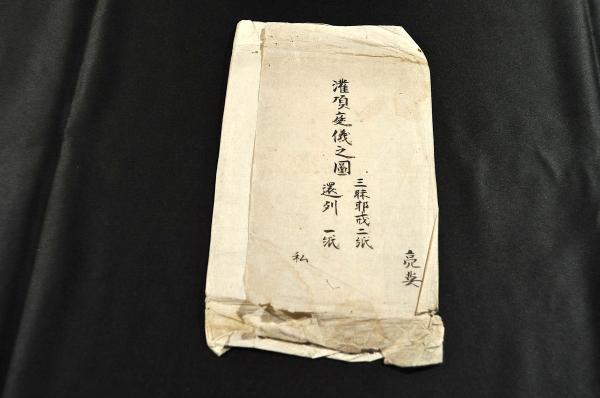 灌頂庭儀之圖
三昧耶戒二紙
還列 一紙
私